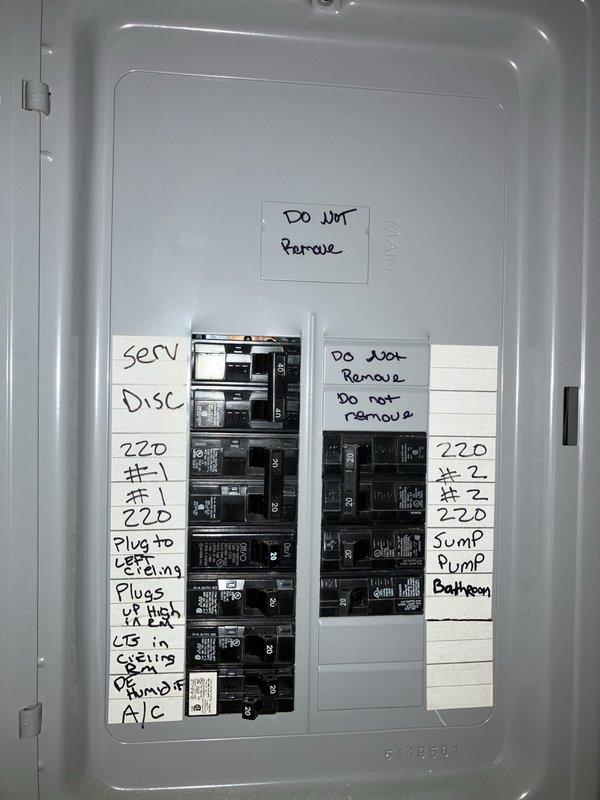 DO NOT
Remove
MAIN
Serv
Disc
220
#1
#1
220
Plug to
LEFT
cieling
Plugs
UP High
in Rm
LTS in
cieling
Rm
DE
Humidif
A/C
40
40
20
20
20
20
20
20
20
Do Not
Remove
Do not
remove
20
20
20
20
220
#2
#2
220
SumP
PumP
Bathroom
6418601